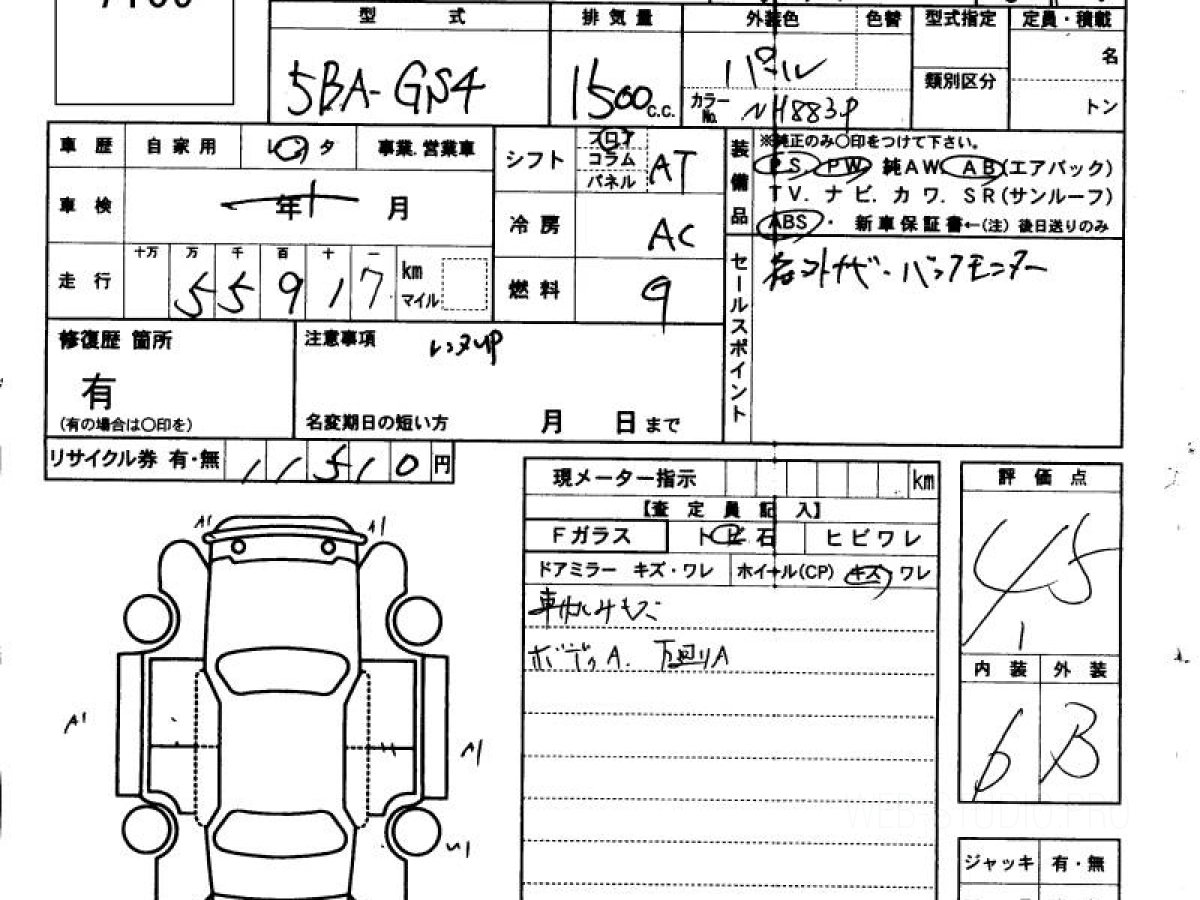 型 式 排気量 外装色 色替 型式指定 定員・積載
5BA-GS4 1500c.c. パール 名
カラーNo. NH883P 類別区分 トン
車歴 自家用 レンタ 事業.営業車
シフト フロア コラム パネル AT
車検 年 月
冷房 AC
走行 十万 万 千 百 十 一
5 5 9 1 7 km マイル
燃料
装備品 ※純正のみ○印をつけて下さい。
PS PW 純AW. AB(エアバック)
TV. ナビ. カワ. SR(サンルーフ)
ABS ・ 新車保証書←(注) 後日送りのみ
セールスポイント
ナビ・バックモニター
修復歴 箇所
有
(有の場合は○印を)
注意事項 レンタUP
名変期日の短い方 月 日まで
リサイクル券 有・無 1 1 5 1 0 円
現メーター指示 km
【査定員記入】
Fガラス トビ石 ヒビワレ
ドアミラー キズ・ワレ ホイール(CP) キズ ワレ
ボディA. 下廻りA
評価点
4.5
1
内装 外装
B
A1 A1
A1 A1
U1
ジャッキ 有・無